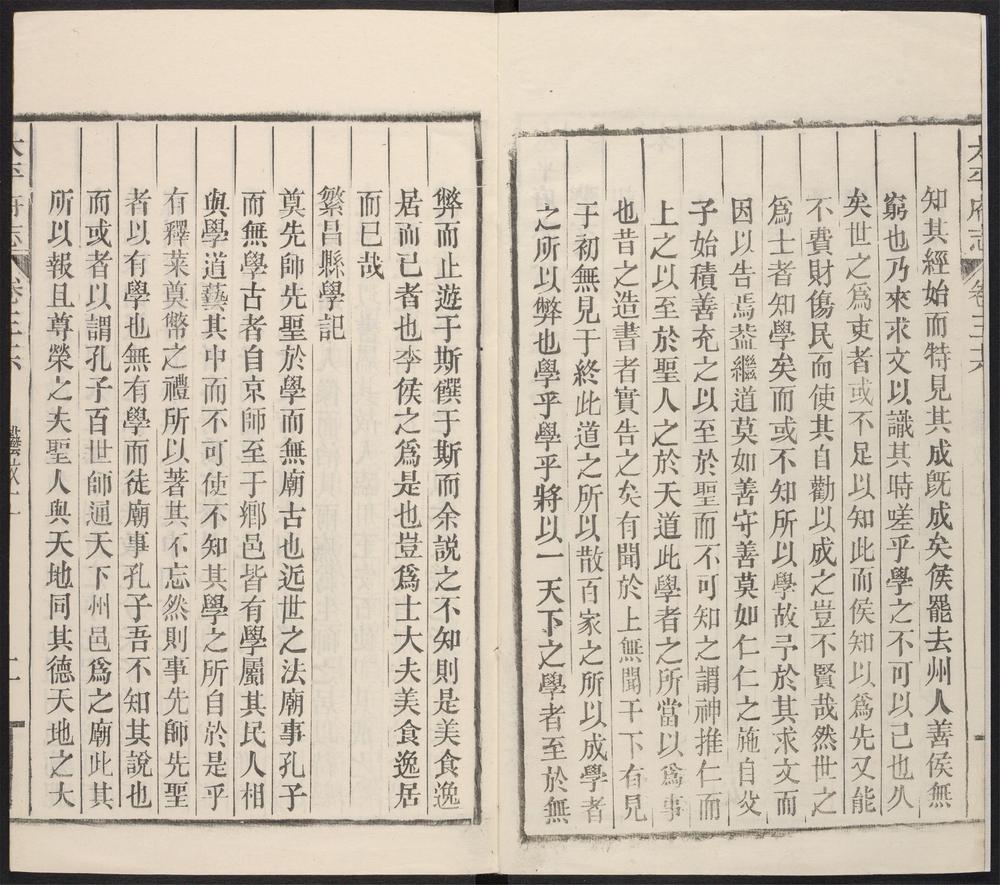 太平府志 卷三十六
知其經始而特見其成旣成矣侯罷去州人善侯無
窮也乃來求文以識其時嗟乎學之不可以已也久
矣世之爲吏者或不足以知此而侯知以爲先又能
不費財傷民而使其自勸以成之豈不賢哉然世之
爲士者知學矣而或不知所以學故予於其求文而
因以告焉葢繼道莫如善守善莫如仁仁之施自父
子始積善充之以至於聖而不可知之謂神推仁而
上之以至於聖人之於天道此學者之所當以爲事
也昔之造書者實告之矣有聞於上無聞于下有見
于初無見于終此道之所以散百家之所以成學者
之所以弊也學乎學乎將以一天下之學者至於無
弊而止遊于斯饌于斯而余説之不知則是美食逸
居而已者也李侯之爲是也豈爲士大夫美食逸居
而已哉
繁昌縣學記
奠先師先聖於學而無廟古也近世之法廟事孔子
而無學古者自京師至于鄕邑皆有學屬其民人相
與學道藝其中而不可使不知其學之所自於是乎
有釋菜奠幣之禮所以著其不忘然則事先師先聖
者以有學也無有學而徒廟事孔子吾不知其說也
而或者以謂孔子百世師通天下州邑爲之廟此其
所以報且尊榮之夫聖人與天地同其德天地之大
太平府志 卷三十六